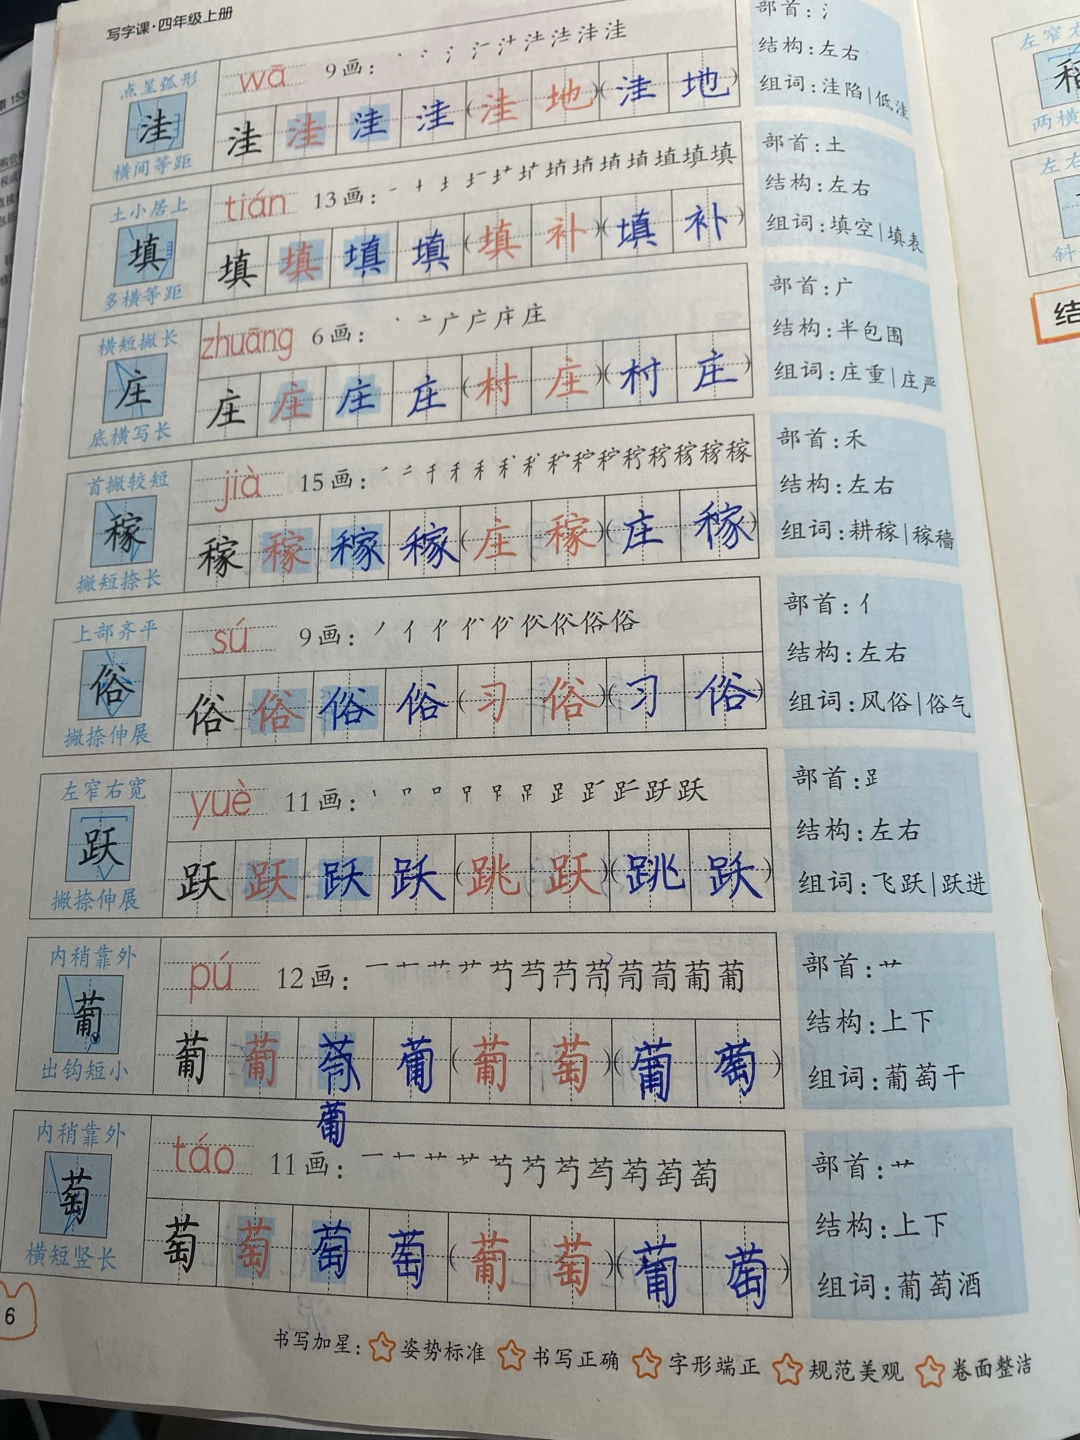 写字课·四年级上册
点呈弧形
洼
横间等距
wā 9画:丶 冫 氵 氵 汁 注 洼 洼 洼
洼 洼 洼 洼(洼 地)(洼 地)
部首:氵
结构:左右
组词:洼陷|低洼
土小居上
填
多横等距
tián 13画:
填 填 填 填(填 补)(填 补)
部首:土
结构:左右
组词:填空|填表
横短撇长
庄
底横写长
zhuāng 6画:丶 亠 广 庐 庄 庄
庄 庄 庄 庄(村 庄)(村 庄)
部首:广
结构:半包围
组词:庄重|庄严
首撇较短
稼
撇短捺长
jià 15画:
稼 稼 稼 稼(庄 稼)(庄 稼)
部首:禾
结构:左右
组词:耕稼|稼穑
上部齐平
俗
撇捺伸展
sú 9画:
俗 俗 俗 俗(习 俗)(习 俗)
部首:亻
结构:左右
组词:风俗|俗气
左窄右宽
跃
撇捺伸展
yuè 11画:
跃 跃 跃 跃(跳 跃)(跳 跃)
部首:⻊
结构:左右
组词:飞跃|跃进
内稍靠外
葡
出钩短小
pú 12画:
葡 葡 葡(葡 萄)(葡 萄)
葡
部首:艹
结构:上下
组词:葡萄干
内稍靠外
萄
横短竖长
táo 11画:
萄 萄 萄 萄(葡 萄)(葡 萄)
部首:艹
结构:上下
组词:葡萄酒
6
书写加星: 姿势标准 书写正确 字形端正 规范美观 卷面整洁
左窄右
两横
左右
斜
结